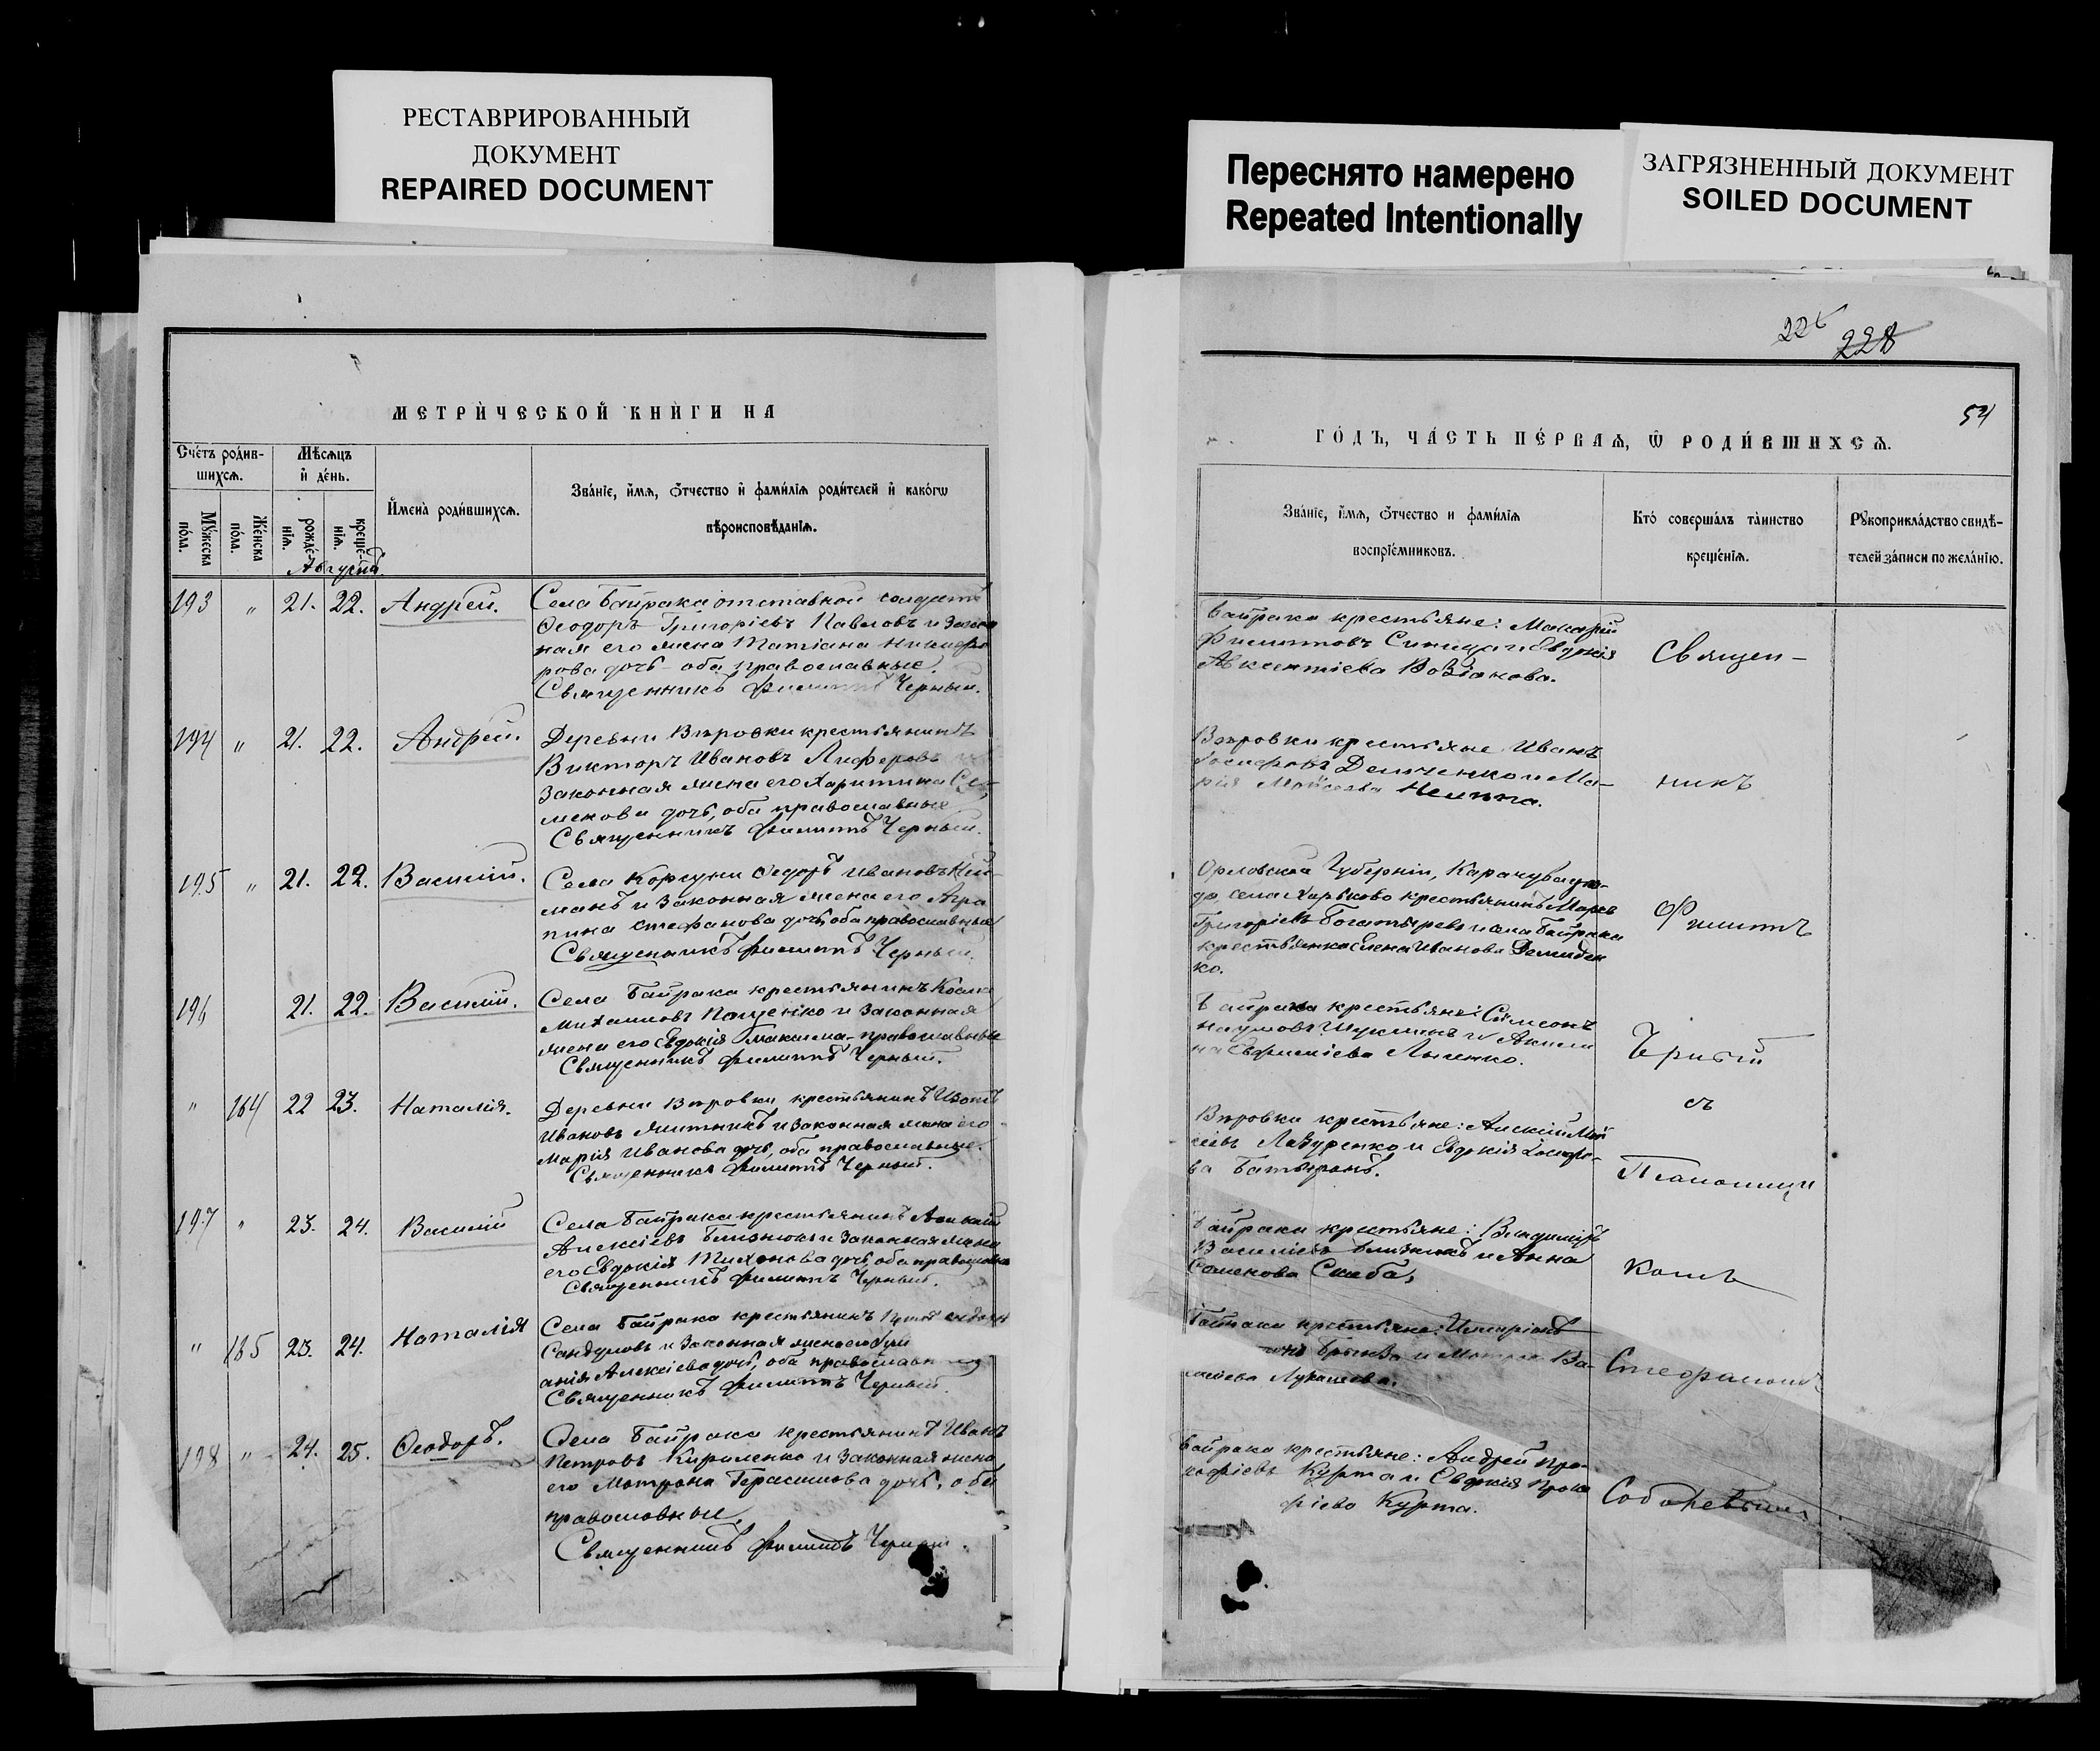 РЕСТАВРИРОВАННЫЙ
ДОКУМЕНТ
REPAIRED DOCUMENT
Переснято намерено
Repeated Intentionally
ЗАГРЯЗНЕННЫЙ ДОКУМЕНТ
SOILED DOCUMENT
МЕТРИЧЕСКОЙ КНИГИ НА
Счетъ родив-
шихсѧ.
Мужеска
пола.
Женска
пола.
Мѣсѧцъ
и день.
рожде-
нїѧ.
креще-
нїѧ.
Имена родившихсѧ.
Званїе, имѧ, ѿчество и фамилїѧ родителей и какогѡ
вѣроисповѣданїѧ.
Августъ
193 " 21. 22. Андрей.
Села Байрака отставной солдатъ
Ѳеодоръ Григоріевъ Павловъ и закон
ная его жена Татіана Никифо
рова дочь оба православные.
Священникъ Филиппъ Черный.
194 " 21. 22. Андрей.
Деревни Вѣровки крестьянинъ
Викторъ Ивановъ Лиферовъ и
законная жена его Харитина Се-
менова дочь, оба православные
Священникъ Филиппъ Черный.
195 " 21. 22. Василій.
Села Корсуни Ѳедоръ Ивановъ
и законная жена его Агра
пина Стефанова дочь, оба православные
Священникъ Филиппъ Черный.
196 21. 22. Василій.
Села Байрака крестьянинъ Косма
Михаиловъ Пащенко и законная
жена его Евдокія Максима- православные
Священникъ Филиппъ Черный.
" 164 22 23. Наталія.
Деревни Вѣровки крестьянинъ
Ивановъ и законная жена его
Марія Иванова дочь, оба православные.
Священникъ Филиппъ Черный.
197 " 23. 24. Василій
Села Байрака крестьянинъ
Алексіевъ Близнюкъ и законная жена
его Евдокія Тихонова дочь, оба православные
Священникъ Филиппъ Черный.
" 165 23. 24. Наталія
Села Байрака крестьянинъ
Сандуловъ и законная жена его
анія Алексіева дочь, оба православные
Священникъ Филиппъ Черный.
198 " 24. 25. Ѳеодоръ.
Села Байрака крестьянинъ Иванъ
Петровъ Кириленко и законная жена
его Матрона Герасимова дочь, оба
православные.
Священникъ Филиппъ Черный.
226
228
54
ГОДЪ, ЧАСТЬ ПЕРВАѦ, Ѡ РОДИВШИХСѦ.
Званїе, имѧ, ѿчество и фамилїѧ
воспрїемниковъ.
Кто совершалъ таинство
крещенїѧ.
Рукоприкладство свидѣ-
телей записи по желанїю.
Байрака крестьяне: Макарій
Филиповъ Синица и Евдокія
Авксентіева Возіанова.
Вѣровки крестьяне Иванъ
Іосифовъ Демченко и Ма-
рія Моисеева
Орловской Губерніи,
села Харьково крестьянинъ Марко
Григоріевъ Богатыревъ и села Байрака
крестьянка Елена Иванова Демиден
ко.
Байрака крестьяне: Симеонъ
Наумовъ и Акили
на Евфиміева
Вѣровки крестьяне: Алексій Мои
сеевъ Лазуренко и Евдокія Іосифо-
ва
Байрака крестьяне: Владиміръ
Василіевъ Близнюкъ и Анна
Семенова
Байрака крестьяне: Иларіонъ
и Матрона Ва-
силіева Лукашова.
Байрака крестьяне: Андрей Про-
кофіевъ Курта и Евдокія Проко
фіева Курта.
Священ-
никъ
Филиппъ
Черный
съ
Псаломщи
комъ
Стефаномъ